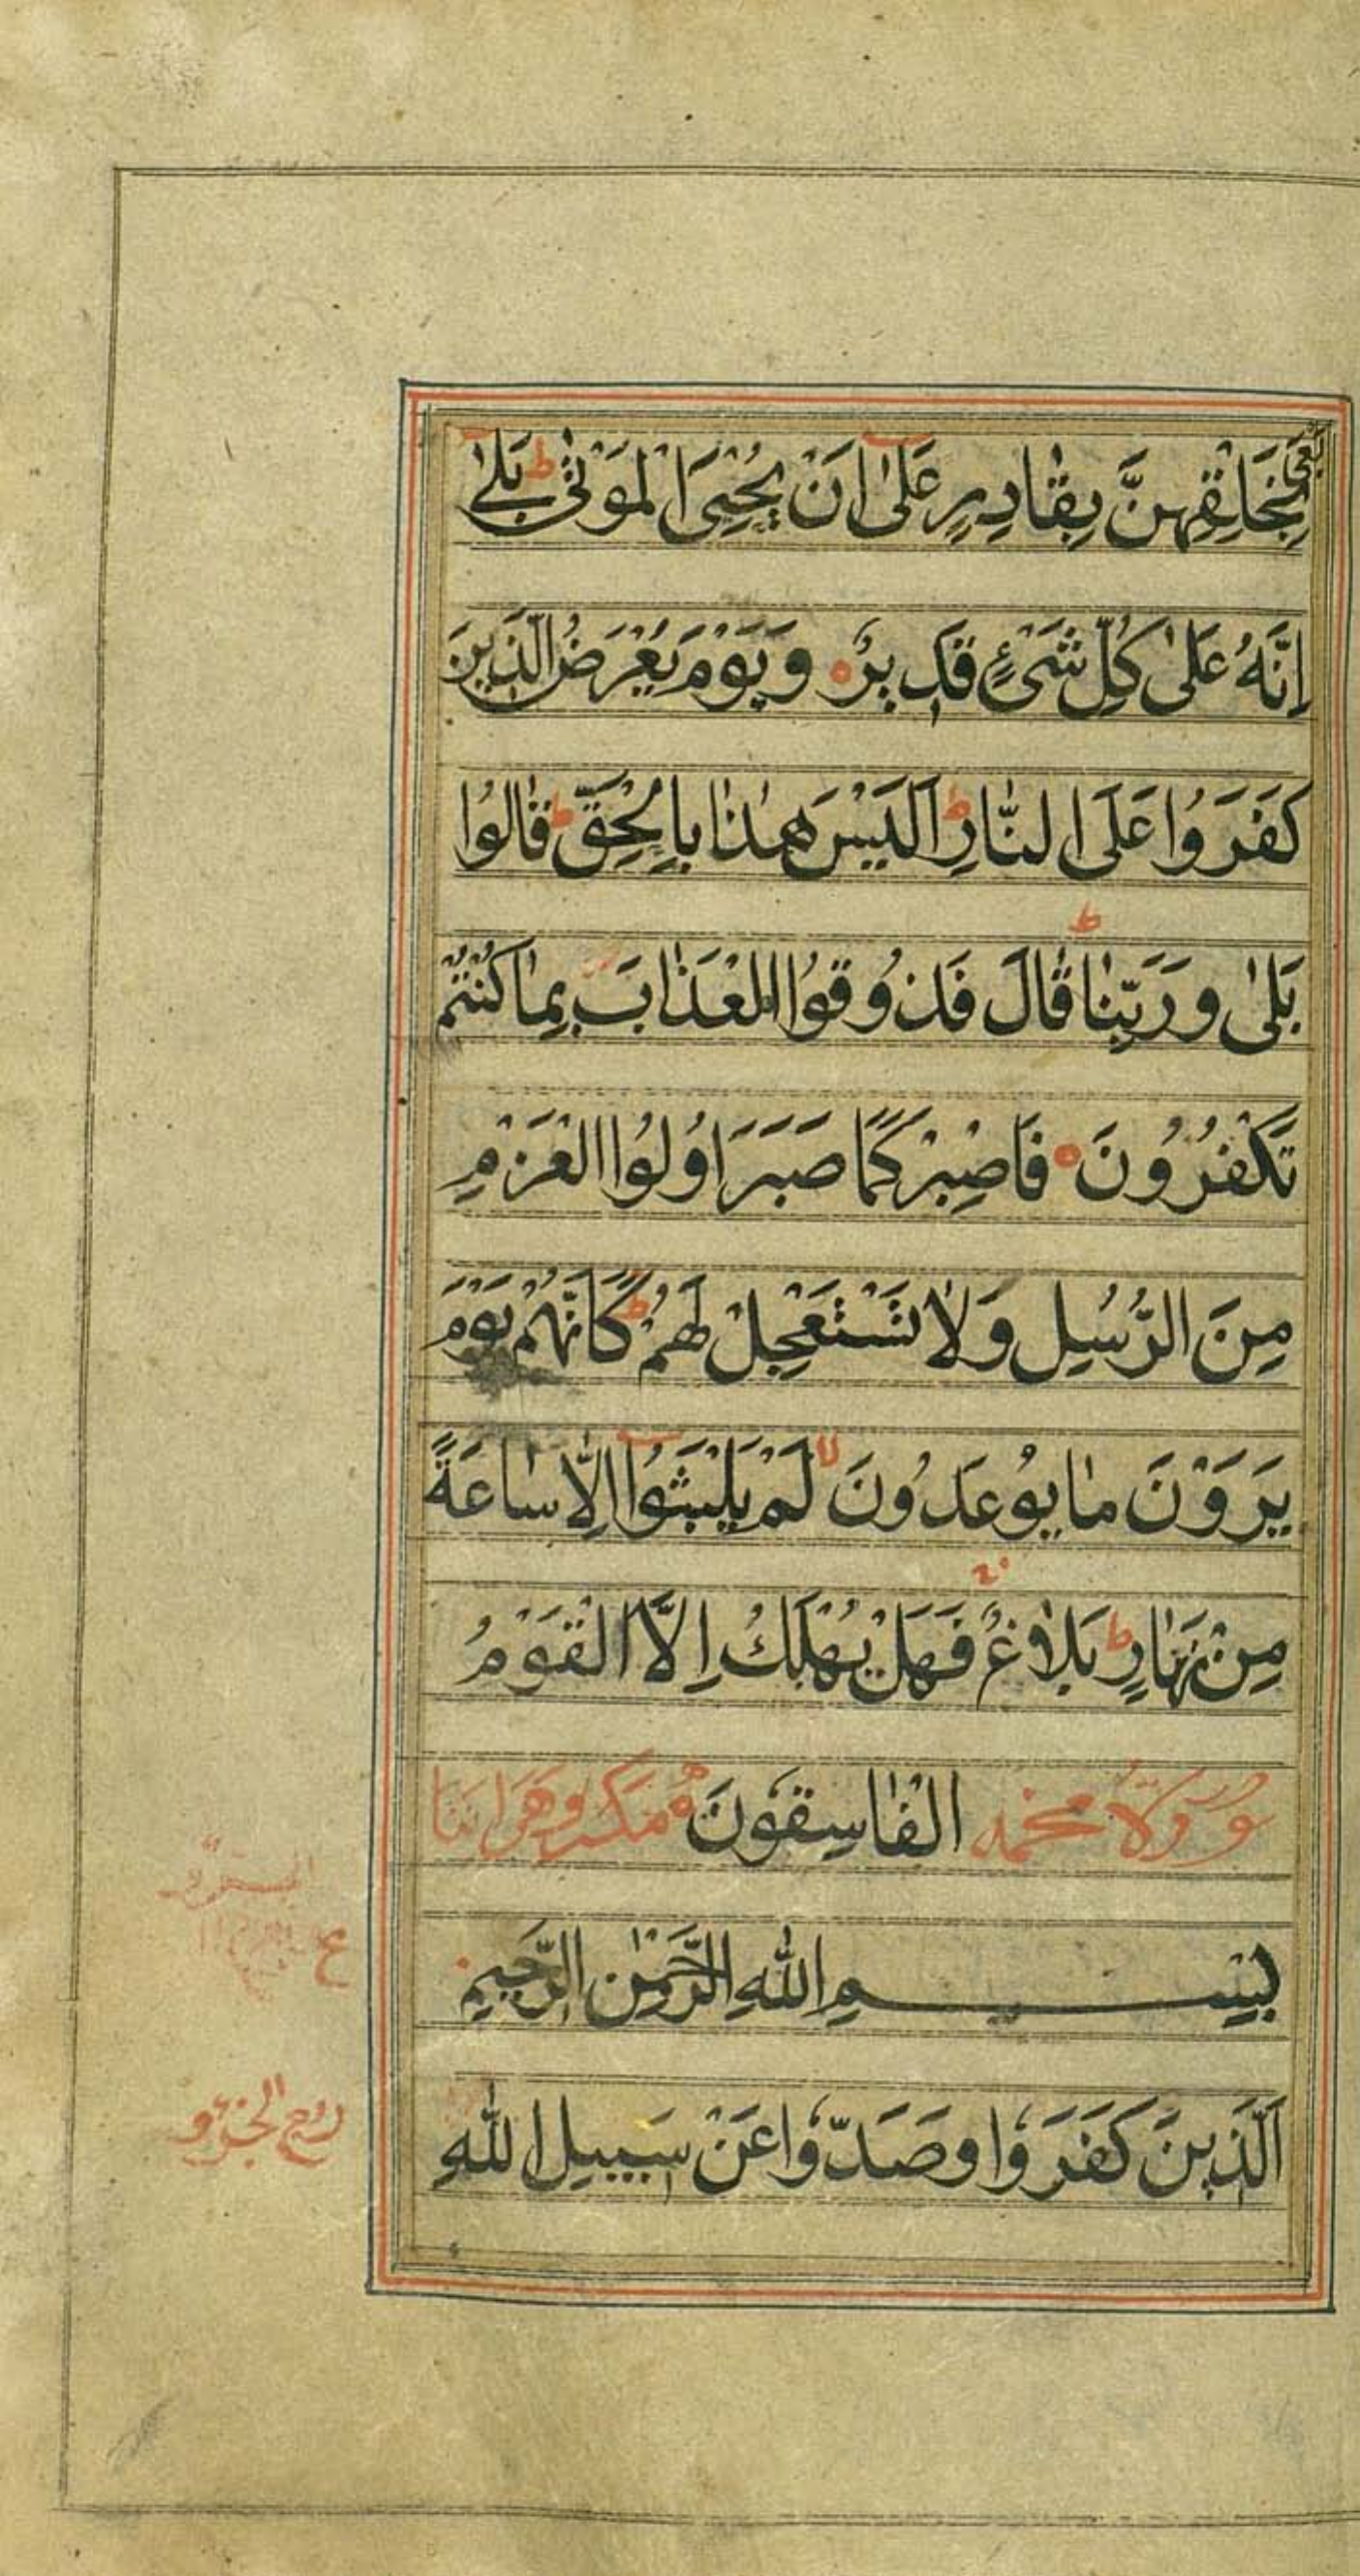 بِخَلْقِهِنَّ بِقَادِرٍ عَلٰٓى اَنْ يُحْيِىَ الْمَوْتٰى ط بَلٰٓى
اِنَّهُ عَلٰى كُلِّ شَىْءٍ قَدِيرٌ ه وَيَوْمَ يُعْرَضُ الَّذِينَ
كَفَرَوُا عَلَى النَّارِ ط اَلَيْسَ هٰذَا بِالْحَقِّ ط قَالُوا
بَلٰى وَرَبِّنَا ط قَالَ فَذُوقُوا الْعَذَابَ بِمَا كُنْتُمْ
تَكْفُرُونَ ه فَاصْبِرْ كَمَا صَبَرَ اُولُوا الْعَزْمِ
مِنَ الرُّسُلِ وَلَا تَسْتَعْجِلْ لَهُمْ ط كَاَنَّهُمْ يَوْمَ
يَرَوْنَ مَا يُوعَدُونَ لا لَمْ يَلْبَثُوٓا اِلَّا سَاعَةً
مِنْ نَهَارٍ ط بَلَاغٌ فَهَلْ يُهْلَكُ اِلَّا الْقَوْمُ
سورة محمد الْفَاسِقُونَ ه
بِسْمِ اللهِ الرَّحْمٰنِ الرَّحِيمِ
اَلَّذِينَ كَفَرَوُا وَصَدُّوا عَنْ سَبِيلِ اللهِ
ع